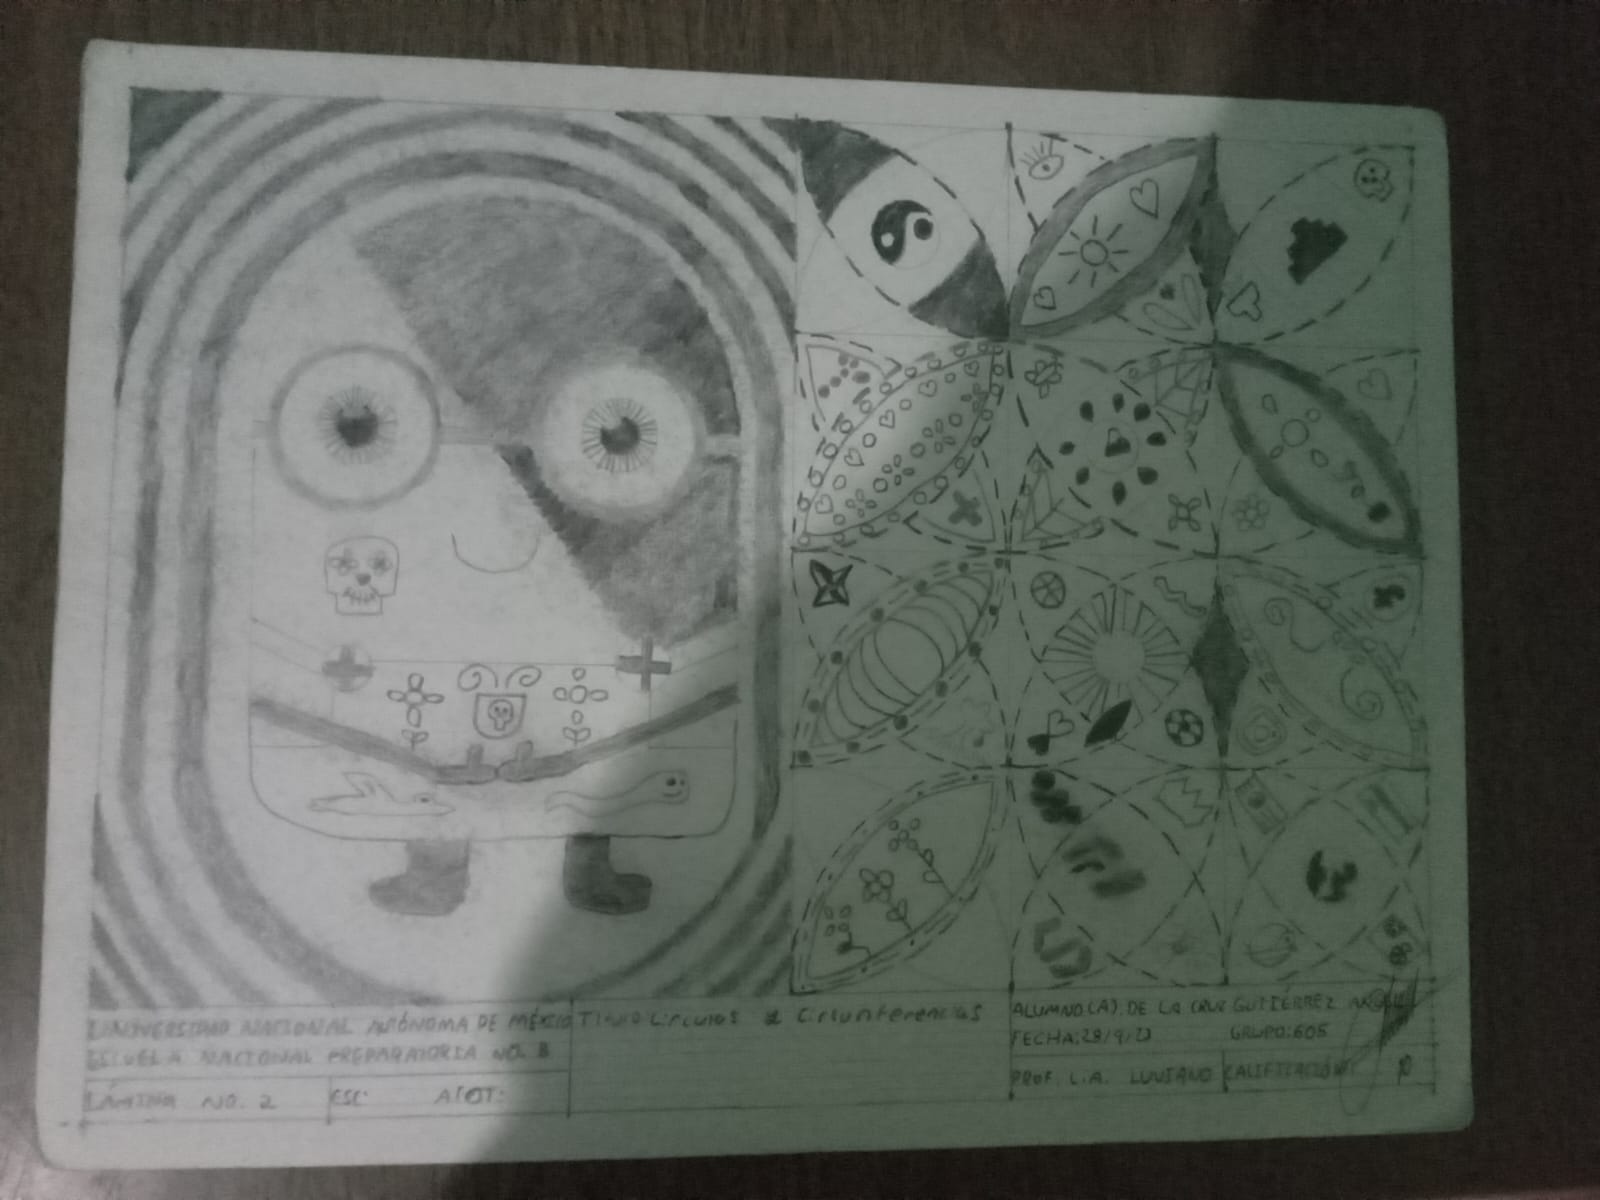 UNIVERSIDAD NACIONAL AUTÓNOMA DE MÉXICO
ESCUELA NACIONAL PREPARATORIA NO. 8
LÁMINA NO. 2
ESC:
ACOT:
TITULO Circulos & Circunferencias
ALUMNO(A): DE LA CRUZ GUTIÉRREZ
FECHA: 28/9/23
GRUPO: 605
PROF. L.A. LUVIANO
CALIFICACIÓN: